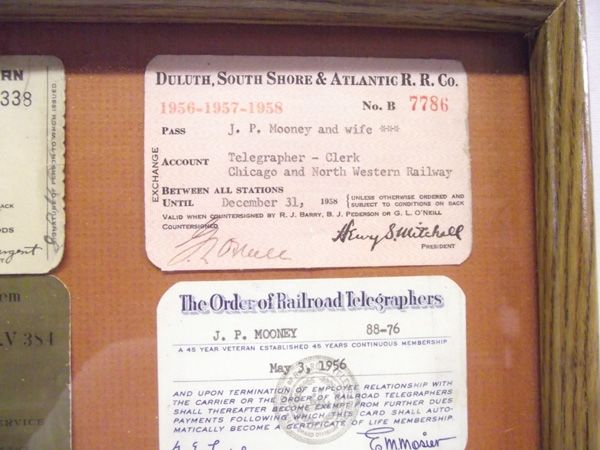 RN
338
DULUTH, SOUTH SHORE & ATLANTIC R. R. CO.
1956-1957-1958 NO. B 7786
PASS J. P. Mooney and wife ***
EXCHANGE
ACCOUNT Telegrapher - Clerk
Chicago and North Western Railway
BETWEEN ALL STATIONS
UNTIL December 31, 1958 { UNLESS OTHERWISE ORDERED AND
SUBJECT TO CONDITIONS ON BACK
VALID WHEN COUNTERSIGNED BY R. J. BARRY, B. J. PEDERSON OR G. L. O'NEILL
COUNTERSIGNED
G L O'Neill
Henry S. Mitchell
PRESIDENT
The Order of Railroad Telegraphers
J. P. MOONEY 88-76
A 45 YEAR VETERAN ESTABLISHED 45 YEARS CONTINUOUS MEMBERSHIP
May 3, 1956
AND UPON TERMINATION OF EMPLOYEE RELATIONSHIP WITH
THE CARRIER OR THE ORDER OF RAILROAD TELEGRAPHERS
SHALL THEREAFTER BECOME EXEMPT FROM FURTHER DUES
PAYMENTS FOLLOWING WHICH THIS CARD SHALL AUTO-
MATICALLY BECOME A CERTIFICATE OF LIFE MEMBERSHIP
E M Mosier
em
V 384
ERVICE